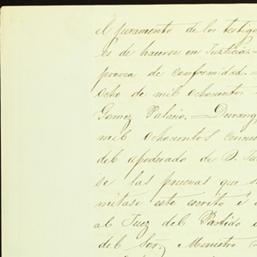 el juramento de los testigo
es de hacerse en Justicia.
provea de conformidad.
ocho de mil ochocientos
Gomez Palacio, Durang
mil ochocientos
del apoderado de D. Ju
se las pruevas que s
mitase este escrito é i
al Juez del Partido
del Sor. Ministro